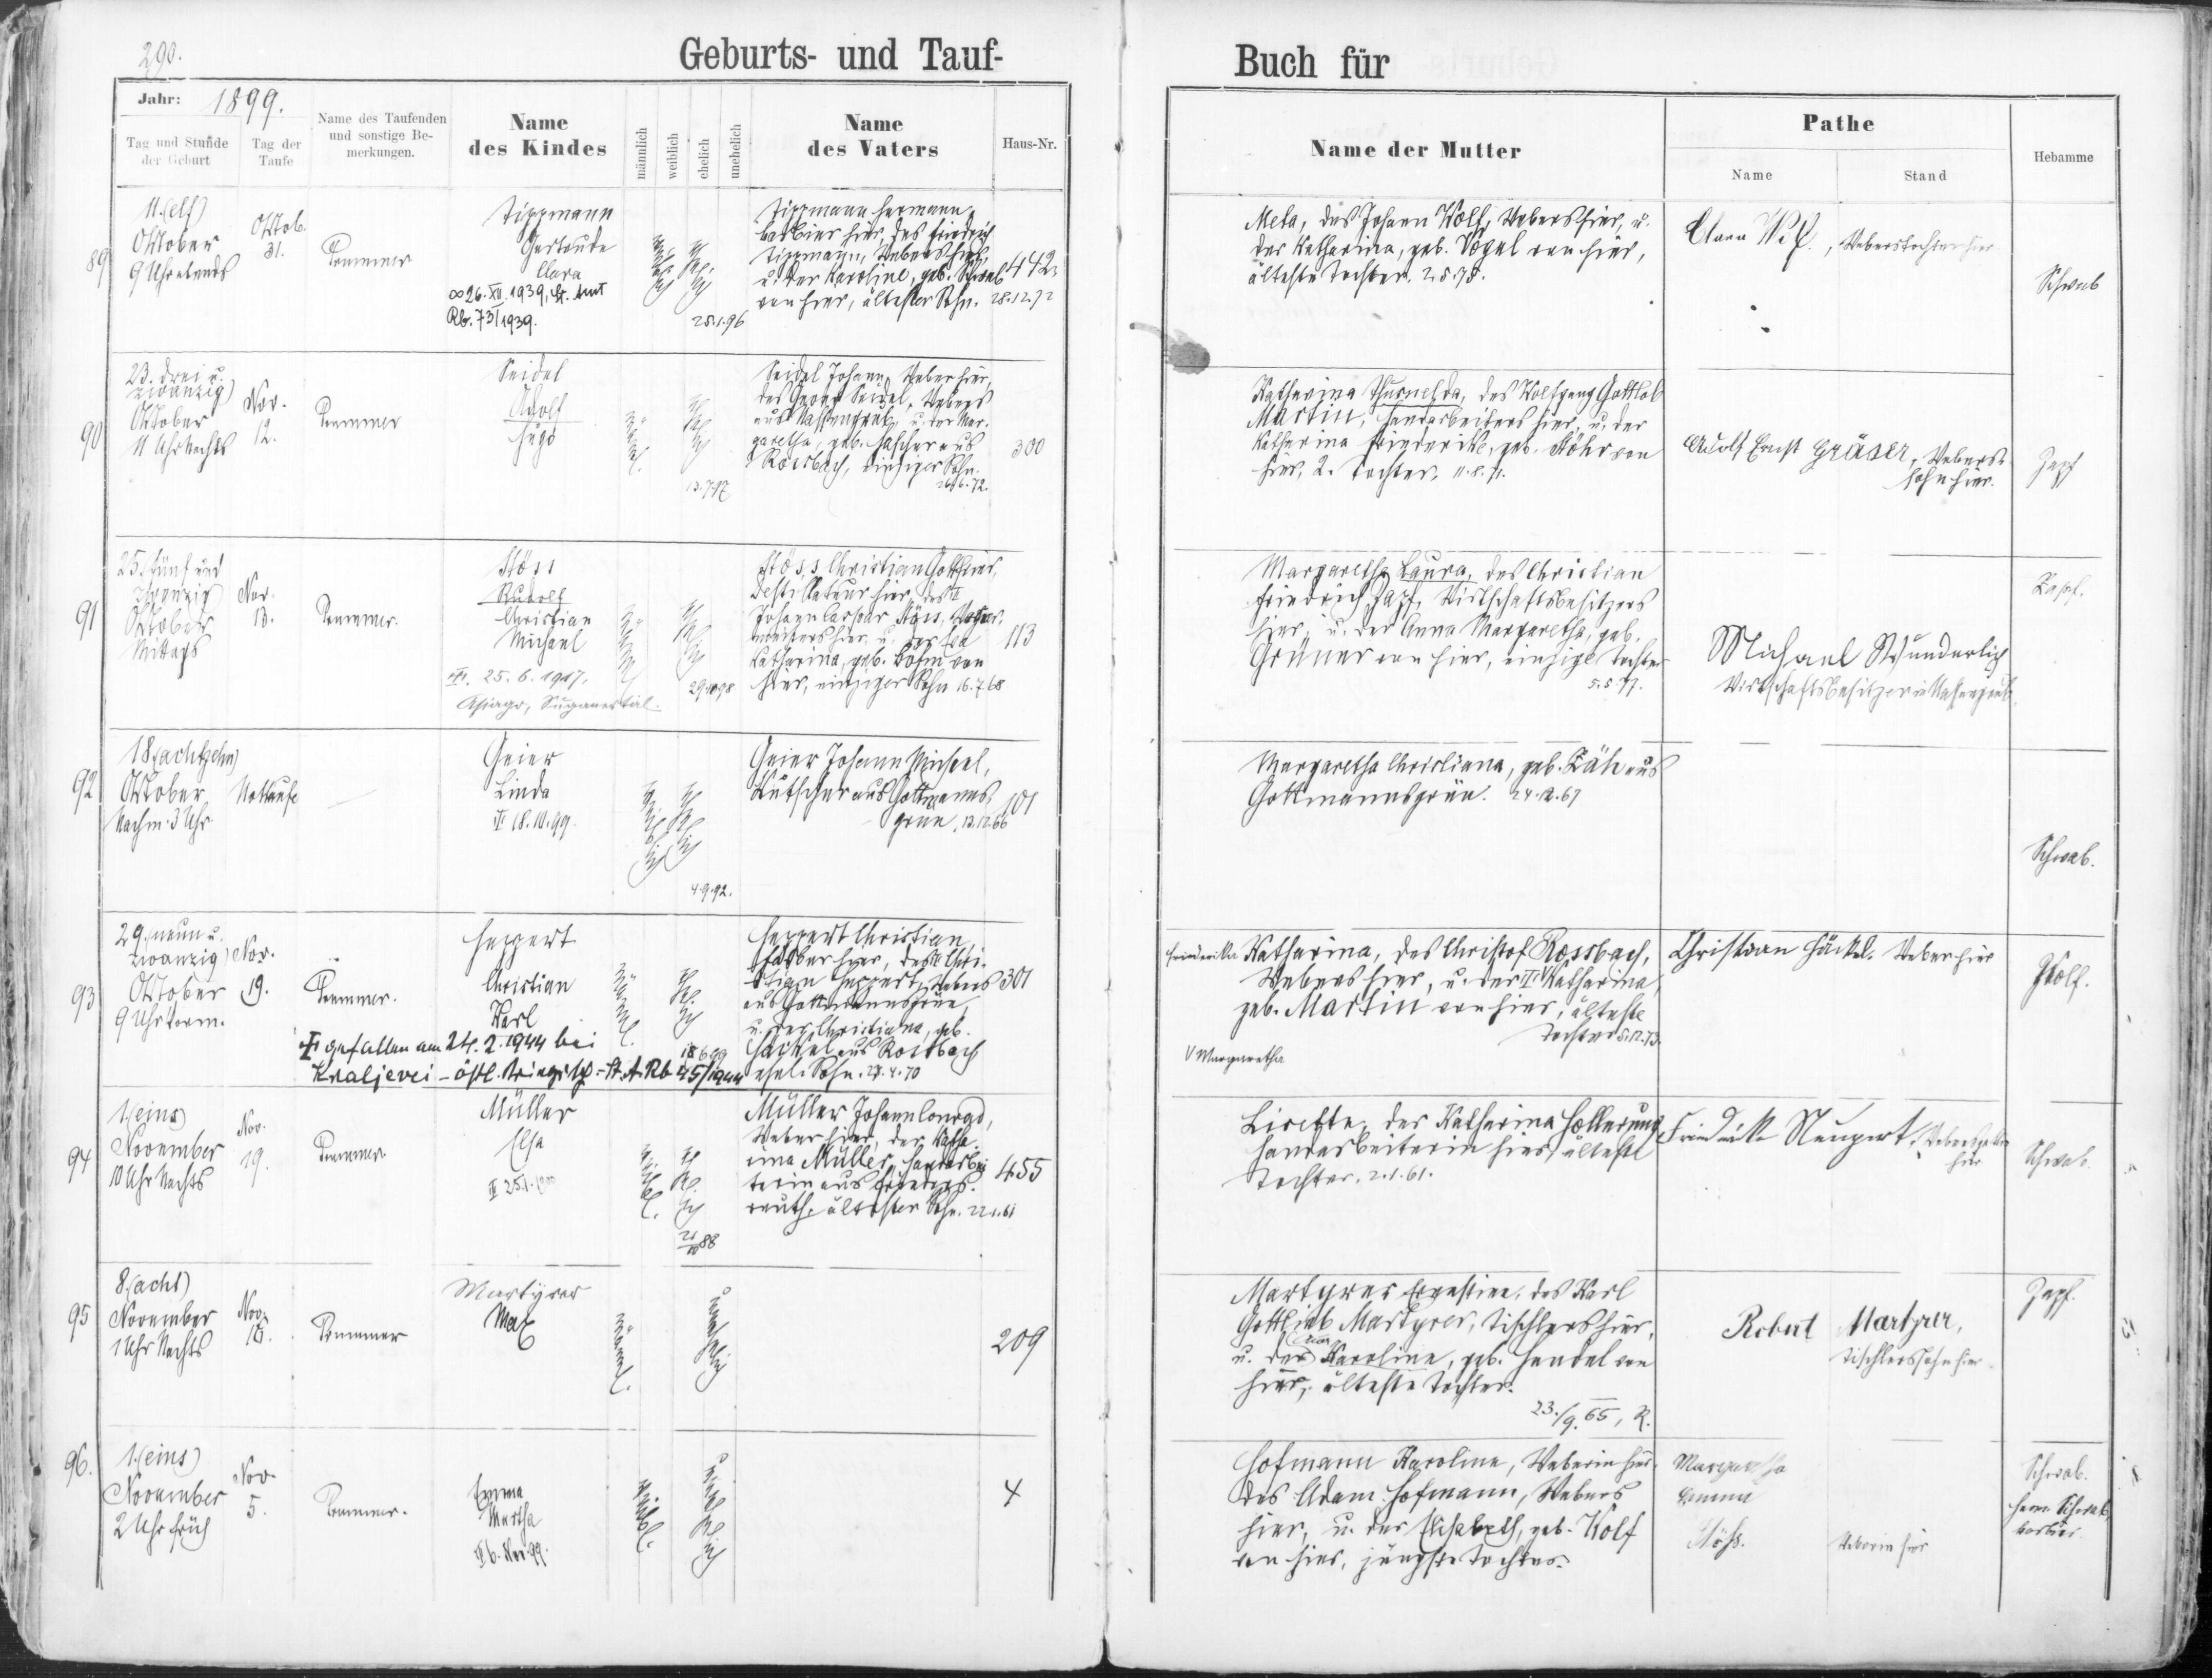 290.
Geburts- und Tauf-
Buch für
Jahr: 1899.
Tag und Stunde der Geburt
Tag der Taufe
Name des Taufenden und sonstige Bemerkungen.
Name des Kindes
männlich
weiblich
ehelich
unehelich
Name des Vaters
Haus-Nr.
Name der Mutter
Pathe
Name
Stand
Hebamme
89
11. (elf)
Oktober
9 Uhr abends
Oktob.
31.
Pommer
Tippmann
Gertrude
Clara
∞ 26. XII. 1939, St. Amt
Rb. 73/1939.
weiblich
ehelich
25.1.96
Tippmann Hermann,
Barbier hier, des Friedrich
Tippmann, Webers hier,
u. der Karoline, geb. Schwab
von hier, ältester Sohn. 28.12.72
442
Meta, des Johann Wolf, Webers hier, u.
der Katharina, geb. Vogel von hier,
älteste Tochter. 2.5.75.
Clara Wolf, Weberstochter hier
Schwab
90
23. (drei u.
zwanzig)
Oktober
11 Uhr Nachts
Nov.
12.
Pommer
Seidel
Adolf
Hugo
männl.
ehelich
Seidel Johann, Weber hier,
des Georg Seidel, Webers
aus Nassengrub, u. der Mar-
garetha, geb. Hascher aus
Rossbach, einziger Sohn.
26.6.72.
300
Katharina Thusnelda, des Wolfgang Gottlob
Martin, Handarbeiters hier, u. der
Katharina Friederike, geb. Stöhr von
hier, 2. Tochter.
Adolf Ernst Gräser, Webers-
sohn hier.
Zapf
91
25. (fünf und
zwanzig)
Oktober
Mittags
Nov.
13.
Pommer.
Stöss
Rudolf
Christian
Michael
25. 6. 1917,
Asiago, Suganertal.
männl.
ehelich
29.10.98
Stöss Christian Gottfried,
Destillateur hier, des
Johann Caspar Stöss,
hier, u. der
Katharina, geb. Böhm von
hier, einziger Sohn 16.7.68
113
Margaretha Laura, des Christian
Friedrich Zapf, Wirtschaftsbesitzers
hier, u. der Anna Margaretha, geb.
Grüner von hier, einzige Tochter
5.5.77.
Michael Wunderlich
Wirtschaftsbesitzer in Nassengrub.
Zapf.
92
18. (achtzehn)
Oktober
Nachm. 3 Uhr.
Nottaufe
Geier
Linda
18.10.99.
weiblich
ehelich
4.9.92.
Geier Johann Michael,
Kutscher aus Gottmanns-
grün, 13.12.66
101
Margaretha Christiana, geb. Zäh aus
Gottmannsgrün. 24.12.67
Schwab.
93
29. (neun u.
zwanzig)
Oktober
9 Uhr Vorm.
Nov.
19.
Pommer.
Heppert
Christian
Karl
gefallen am 24. 2. 1944 bei
Kraljevci - östl. - St. A. Rb 45/1944
männl.
ehelich
18.6.99
Heppert Christian,
Färber hier, des Chri-
stian Heppert, Webers
aus Gottmannsgrün,
u. der Christiana, geb.
Häckel aus Rossbach
ehel. Sohn. 27.4.70
301
Friederika Katharina, des Christof Rossbach,
Webers hier, u. der Katharina,
geb. Martin von hier, älteste
Tochter 5.12.73.
V Margaretha
Christian Häckel, Weber hier
Wolf.
94
1. (eins)
November
10 Uhr Nachts
Nov.
19.
Pommer
Müller
Elsa
25.1.1900
weibl.
ehelich
21/10 88
Müller Johann Conrad,
Weber hier, der Katha-
rina Müller, Handarbei-
terin aus Frieders-
reuth, ältester Sohn. 22.1.61
455
Lisette, der Katharina Hollerung,
Handarbeiterin hier, älteste
Tochter. 2.1.61.
Friederike Neupert,
hier
Schwab
95
8. (acht)
November
1 Uhr Nachts
Nov.
Pommer
Martyrer
Max
männl.
unehelich
209
Martyrer Ernestine, des Karl
Gottlieb Martyrer, Tischlers hier,
u. der Karoline, geb. Hendel von
hier, älteste Tochter.
23./9. 65, R.
Robert Martyrer,
Tischlerssohn hier
Zapf.
96.
1. (eins)
November
2 Uhr früh
Nov.
5.
Pommer.
Emma
Martha
6. Nov. 99.
weibl.
unehelich
4
Hofmann Karoline, Weberin hier,
des Adam Hofmann, Webers
hier, u. der Elisabeth, geb. Wolf
von hier, jüngste Tochter.
Margaretha
Emma
Stöss.
Weberin hier
Schwab.
Herm. Schwab,
Barbier.